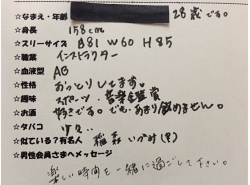 ☆なまえ・年齢 28歳です。
☆身長 158cm
☆スリーサイズ B81 W60 H85
☆職業 インストラクター
☆血液型 AB
☆性格 おっとりしてます。
☆趣味 スポーツ、音楽鑑賞
☆お酒 好きです。でもあまり飲めません。
☆タバコ 少々
☆似ている?有名人 稲森いずみ(?)
☆男性会員さまへメッセージ
楽しい時間を一緒に過ごして下さい。